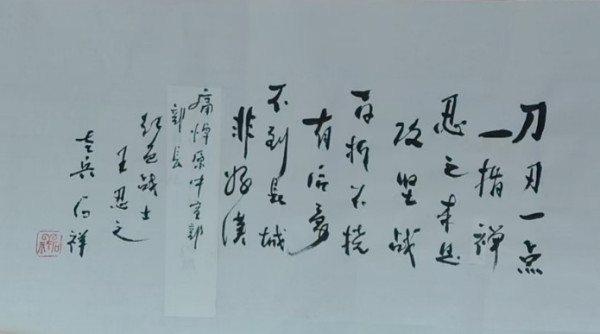 刀刃一点
一指禅
忍之来
攻坚战
百折不挠
有信
不到长城
非好汉
痛悼原中宣部
部长
红色战士
王忍之
兵 祥